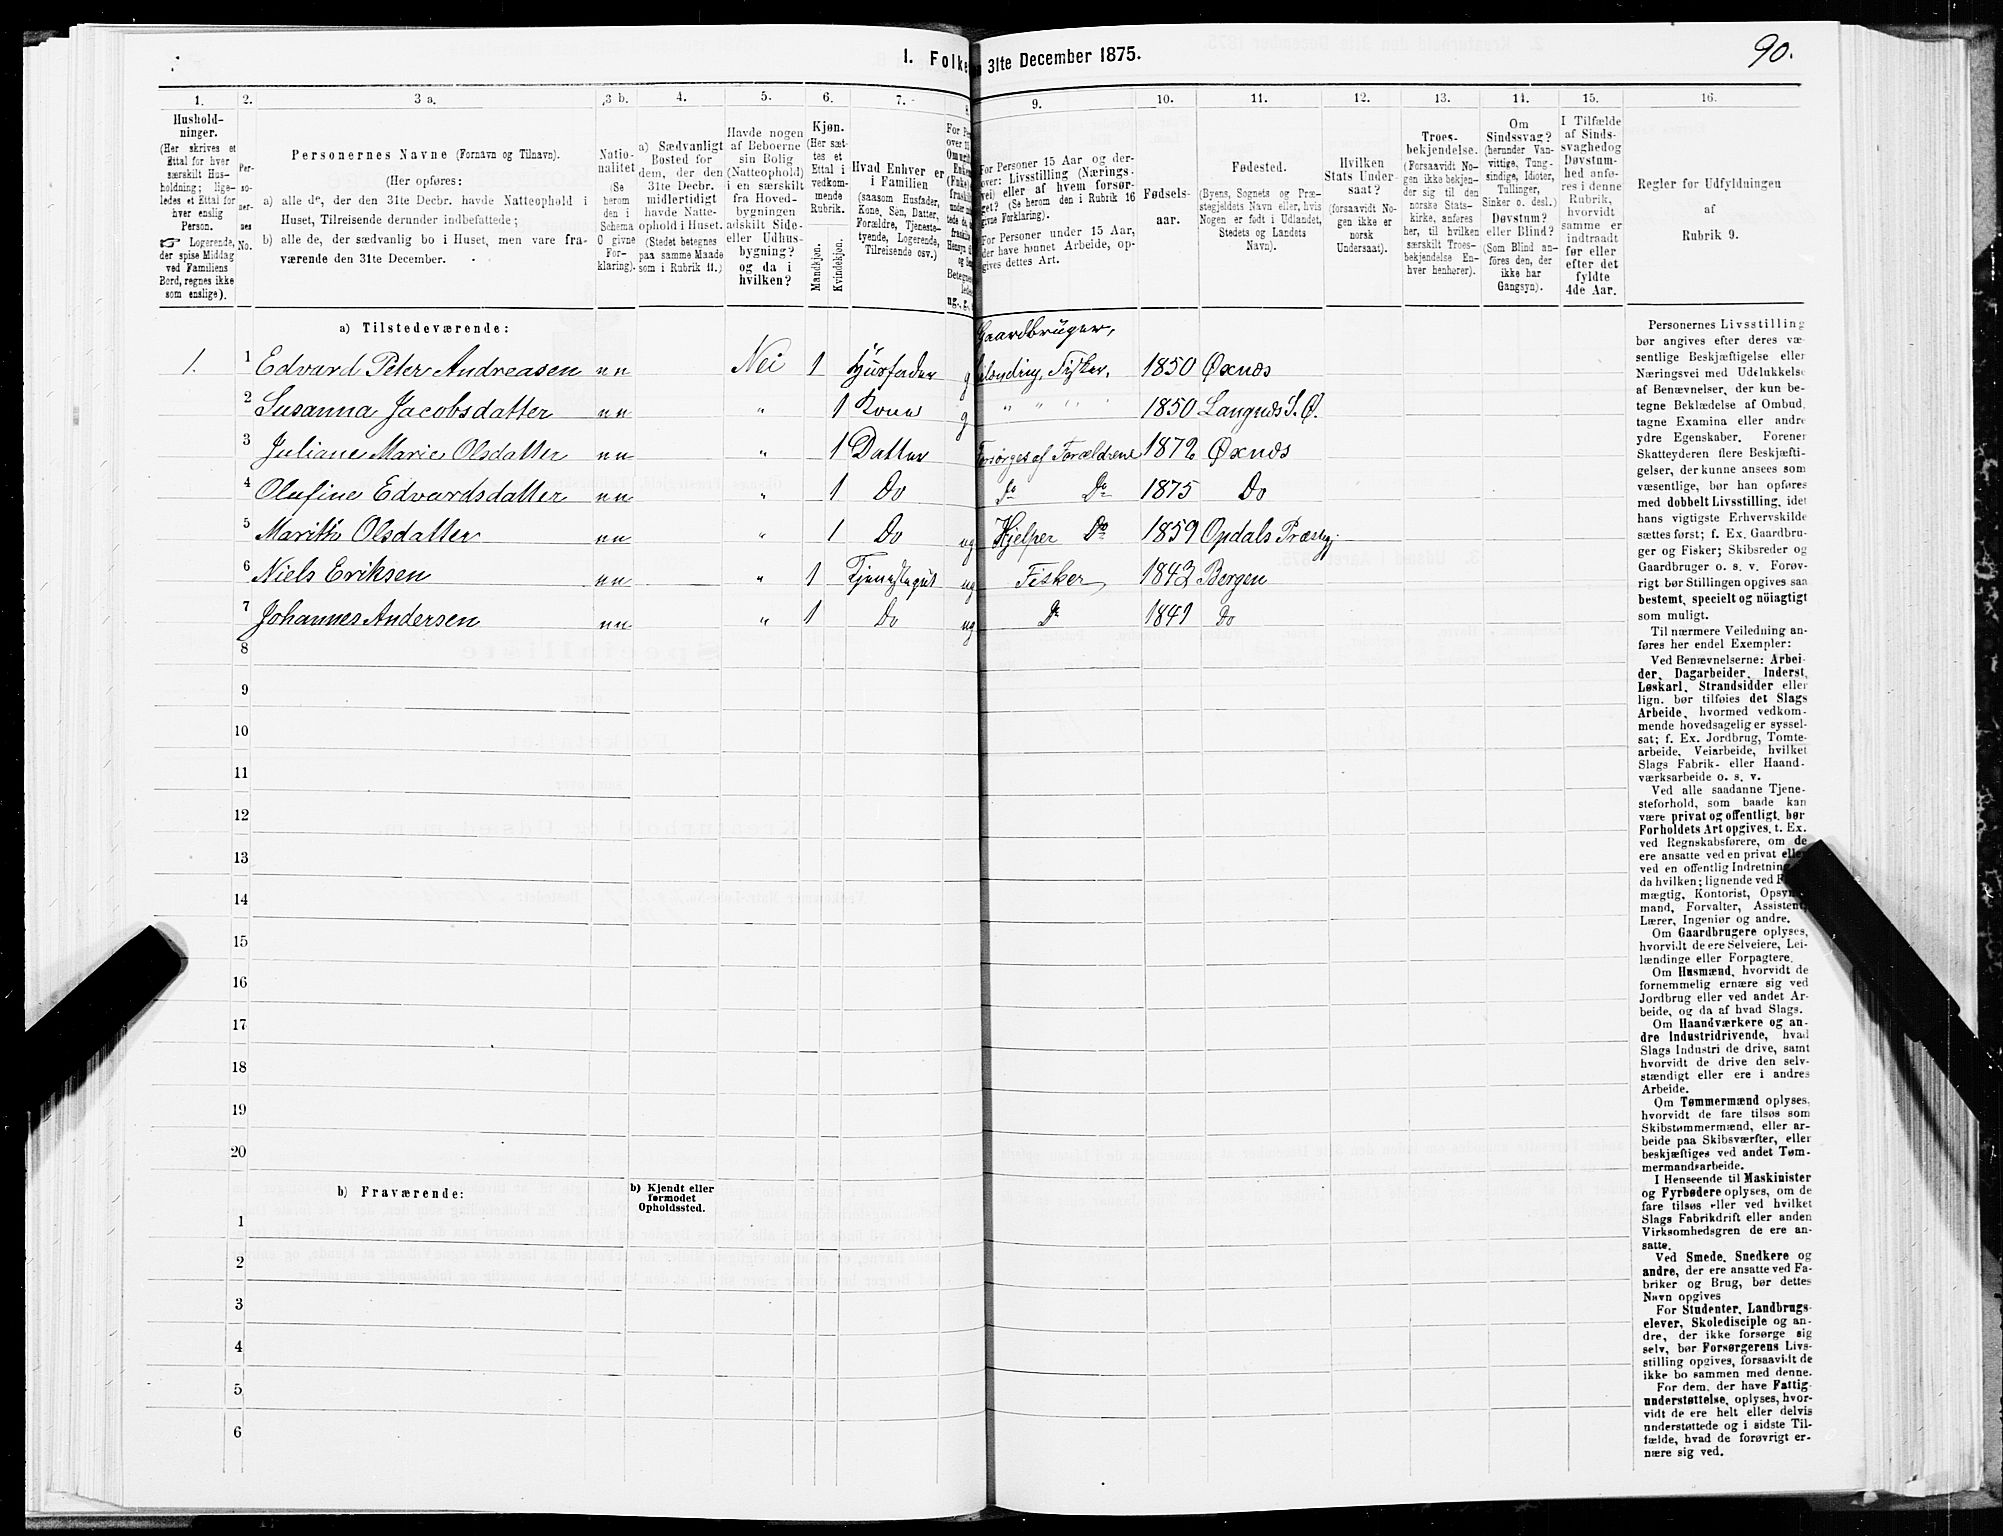 90.
1. Folke 31te December 1875.
1. 2. 3 a. 3 b. 4. 5. 6. 7. 8 9. 10. 11. 12. 13. 14. 15. 16.
Hushold-
ninger.
(Her skrives et
Ettal for hver
særskilt Hus-
holdning; lige-
ledes et Ettal for
hver enslig
Person.
Logerende,
der spise Middag
ved Familiens
Bord, regnes ikke
som enslige).
Per-
so-
ner-
nes
No.
Personernes Navne (Fornavn og Tilnavn).
(Her opføres:
a) alle de, der den 31te Decbr. havde Natteophold i
Huset, Tilreisende derunder indbefattede;
b) alle de, der sædvanlig bo i Huset, men vare fra-
værende den 31te December.
Natio-
nalitet
(Se
herom
den i
Schema
C givne
For-
klaring).
a) Sædvanligt
Bosted for
dem, der den
31te Decbr.
midlertidigt
havde Natte-
ophold i Huset.
(Stedet betegnes
paa samme Maade
som i Rubrik 11.)
Havde nogen
af Beboerne
sin Bolig
(Natteophold)
i en særskilt
fra Hoved-
bygningen
adskilt Side-
eller Udhus-
bygning?
og da i
hvilken?
Kjøn.
(Her sæt-
tes et
Ettal i
vedkom-
mende
Rubrik.
Mandkjøn.
Kvindekjøn.
Hvad Enhver er
i Familien
(saasom Husfader,
Kone, Søn, Datter,
Forældre, Tjeneste-
tyende, Logerende,
Tilreisende osv.)
ug., g.,
For Personer 15 Aar og der-
over: Livsstilling (Nærings-
vei) eller af hvem forsør-
get? (Se herom den i Rubrik 16
givne Forklaring).
For Personer under 15 Aar,
der have lønnet Arbeide, op-
gives dettes Art.
Fødsels-
aar.
Fødested.
(Byens, Sognets og Præ-
stegjeldets Navn eller, hvis
Nogen er født i Udlandet,
Stedets og Landets
Navn).
Hvilken
Stats Under-
saat?
(forsaavidt No-
gen ikke er
norsk
Undersaat).
Troes-
bekjendelse.
(Forsaavidt No-
gen ikke bekjen-
der sig til den
norske Stats-
kirke, anføres
her, til hvilken
særskilt Troes-
bekjendelse En-
hver henhører).
Om
Sindssvag?
(herunder Van-
vittige, Tung-
sindige, Idioter,
Tullinger,
Sinker o. desl.)
Døvstum?
eller Blind?
(Som Blind an-
føres den, der
ikke har
Gangsyn).
I Tilfælde
af Sinds-
svaghed og
Døvstum-
hed anfø-
res i denne
Rubrik,
hvorvidt
samme er
indtraadt
før eller
efter det
fyldte
4de Aar.
Regler for Udfyldningen
af
Rubrik 9.
a) Tilstedeværende:
Gaardbruger,
1. 1 Edvard Peter Andreasen nn Nei 1 Husfader g Fisker, 1850 Øxnæs
2 Susanna Jacobsdatter nn " 1 Kone g " " " " 1850 Langnæs S. Ø.
3 Juliane Marie Olsdatter nn " 1 Datter Forsørges af Forældrene 1872 Øxnæs
4 Olufine Edvardsdatter nn " 1 Do Do Do 1875 Do
5 Marith Olsdatter nn " 1 Do ug Hjelper Do 1859 Opdals Præstg.
6 Niels Eriksen nn " 1 Tjenestegut ug Fisker 1842 Bergen
7 Johannes Andersen nn " 1 Do ug Do 1841 Do
8
9
10
11
12
13
14
15
16
17
18
19
20
b) Fraværende:
b) Kjendt eller
formodet
Opholdssted.
1
2
3
4
5
6
Personernes Livsstilling
bør angives efter deres væ-
sentlige Beskjæftigelse eller
Næringsvei med Udelukkelse
af Benævnelser, der kun be-
tegne Beklædelse af Ombud,
tagne Examina eller andre
ydre Egenskaber. Forener
Skatteyderen flere Beskjæfti-
gelser, der kunne ansees som
væsentlige, bør han opføres
med dobbelt Livsstilling, idet
hans vigtigste Erhvervskilde
sættes først; f. Ex. Gaardbru-
ger og Fisker; Skibsreder og
Gaardbruger o. s. v. Forøv-
rigt bør Stillingen opgives saa
bestemt, specielt og nöiagtigt
som muligt.
Til nærmere Veiledning an-
føres her endel Exempler:
Ved Benævnelserne: Arbei-
der, Dagarbeider, Inderst,
Løskarl, Strandsidder eller
lign. bør tilføies det Slags
Arbeide, hvormed vedkom-
mende hovedsagelig er syssel-
sat; f. Ex. Jordbrug, Tomte-
arbeide, Veiarbeide, hvilket
Slags Fabrik- eller Haand-
værksarbeide o. s. v.
Ved alle saadanne Tjene-
steforhold, som baade kan
være privat og offentligt, bør
Forholdets Art opgives, t. Ex.
ved Regnskabsførere, om de
ere ansatte ved en privat eller
ved en offentlig Indretning
da hvilken; lignende ved
mægtig, Kontorist, Opsyns-
mand, Forvalter, Assistent,
Lærer, Ingeniør og andre.
Om Gaardbrugere oplyses,
hvorvidt de ere Selveiere, Lei-
lændinge eller Forpagtere.
Om Husmænd, hvorvidt de
fornemmelig ernære sig ved
Jordbrug eller ved andet Ar-
beide, og da af hvad Slags.
Om Haandværkere og an-
dre Industridrivende, hvad
Slags Industri de drive, samt
hvorvidt de drive den selv-
stændigt eller ere i andres
Arbeide.
Om Tømmermænd oplyses,
hvorvidt de fare tilsøs som
Skibstømmermænd, eller ar-
beide paa Skibsværfter, eller
beskjæftiges ved andet Tøm-
mermandsarbeide.
I Henseende til Maskinister
og Fyrbødere oplyses, om de
fare tilsøs eller ved hvilket
Slags Fabrikdrift eller anden
Virksomhedsgren de ere an-
satte.
Ved Smede, Snedkere og
andre, der ere ansatte ved Fa-
briker og Brug, bør dettes
Navn opgives
For Studenter, Landbrugs-
elever, Skoledisciple og an-
dre, der ikke forsørge sig
selv, bør Forsørgerens Livs-
stilling opgives, forsaavidt de
ikke bo sammen med denne.
For dem, der have Fattig-
understøttelse, oplyses, hvor-
vidt de ere helt eller delvis
understøttede og i sidste Til-
fælde, hvad de forøvrigt er-
nære sig ved.